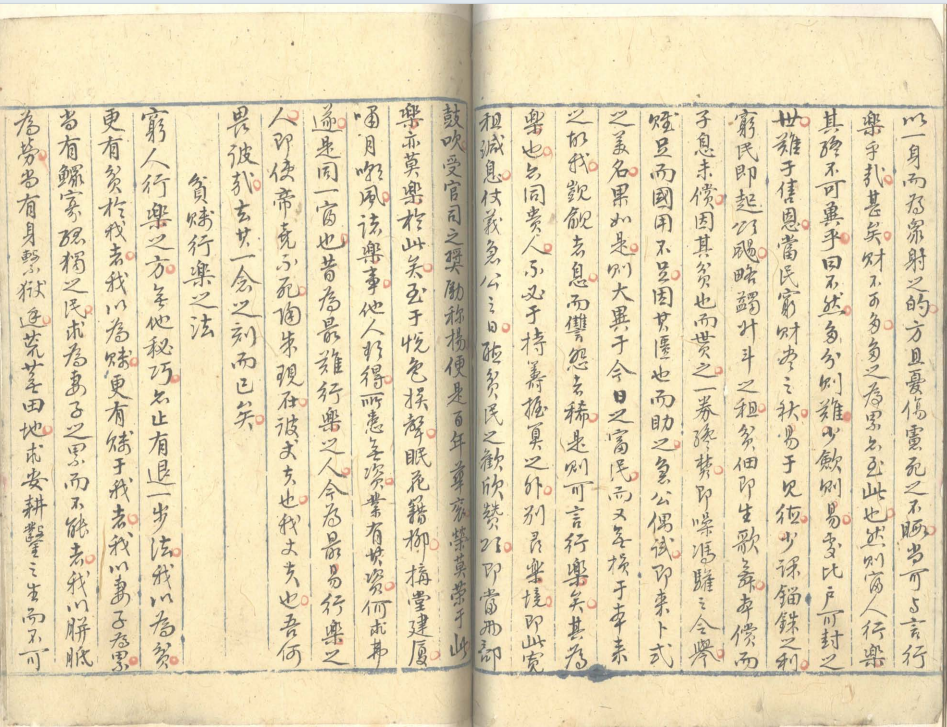 以一身而為衆射之的方且憂傷慮死之不暇尚可与言行
樂乎哉甚矣財不可多多之為累亦至此也然則富人行樂
其終不可冀乎曰不然多分則難少歛則易處比戶可封之
世難于售恩當民窮財尽之秋易于見德少課錙銖之利
窮民即起頌颺略蠲升斗之租貧佃即生歌舞本償而
子息未償因其貧也而貰之一券纔焚即噪馮驩之令譽
賦足而國用不足因其匱也而助之急公偶試即来卜式
之美名果如是則大異于今日之富民而又無損于本来
之故我覬覦者息而讐怨者稀是則可言行樂矣其為
樂也亦同貴人不必于持籌握算之外別尋樂境即此寬
租減息仗義急公之日聽貧民之歡欣贊頌即當兩部
鼓吹受官司之奬勵称揚便是百年華衮榮莫榮于此
樂亦莫樂於此矣至于悅色娛聲眠花藉柳搆堂建厦
嘯月嘲風諸樂事他人欲得所患無資業有其資何求弗
遂是同一富也昔為最難行樂之人今為最易行樂之
人即使帝堯不死陶朱現在彼丈夫也我丈夫也吾何
畏彼哉去其一念之刻而已矣
貧賤行樂之法
窮人行樂之方無他秘巧亦止有退一步法我以為貧
更有貧於我者我以為賤更有賤于我者我以妻子為累
尚有鰥寡孤獨之民求為妻子之累而不能者我以胼胝
為勞尚有身繫獄廷荒蕪田地求安耕鑿之生而不可